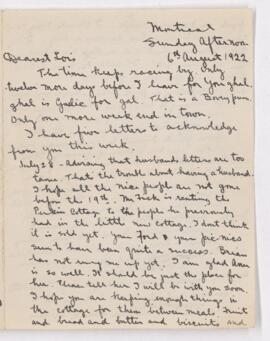 Montreal
Sunday Afternoon.
6th August 1922
Dearest Lois
The time keeps racing by. Only
twelve more days before I leave for You ghal.
ghal is Gaelic for gal. That is a pun.
Only one more week end in town.
I have five letters to acknowledge
from you this week.
July 28 - Advising that husbands letters are too
tame. That's the trouble about having a husband.
I hope all the nice people are not gone
before the 19th. is renting the
Cottage to the people he previously
had in the little new cottage. I don't think
it is sold yet. Your food & your pic-nics
seem to have been quite a success.
has not rung me up yet. I am glad
is so well. It should be just the place for
her. Please tell her I will be with you soon.
I hope you are keeping enough things in
the cottage for them between meals. Fruit
and bread and butter and biscuits and